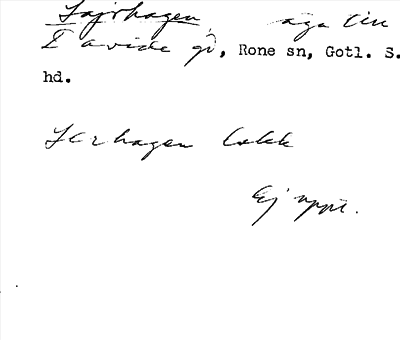 Lajrhagen, äga till
Lavide gd, Rone sn, Gotl. S.
hd.
Lerhagen lokk
Ej uppt.